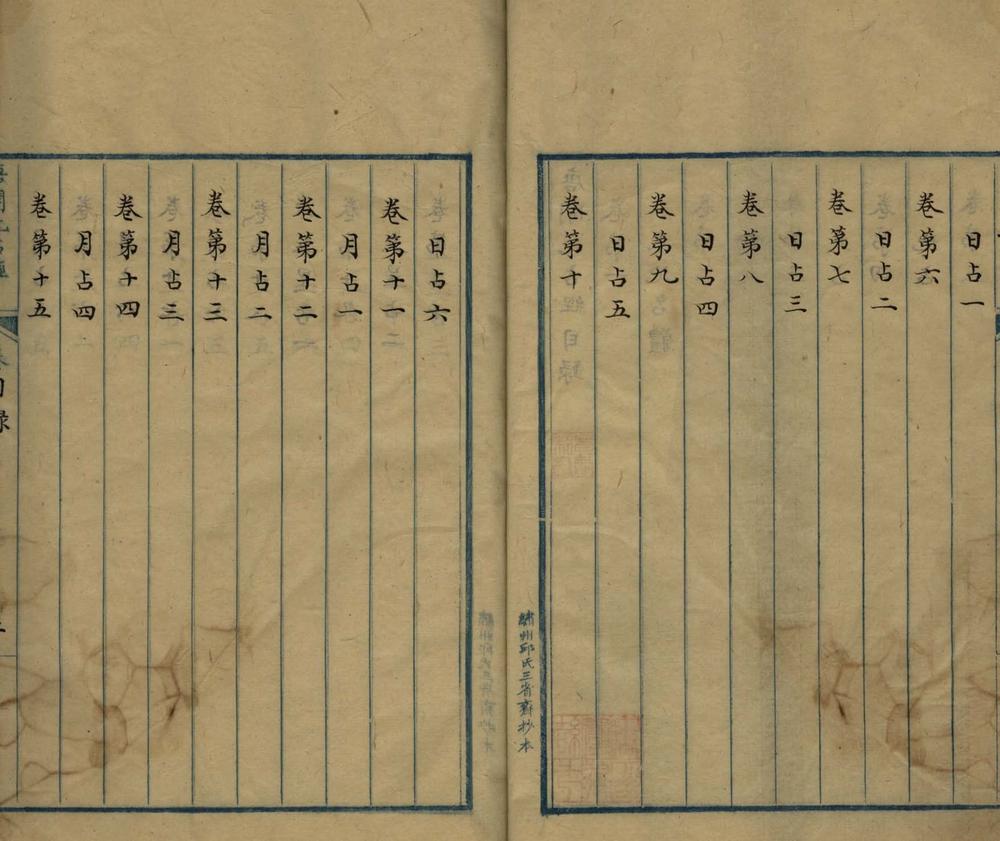 日占一
卷第六
日占二
卷第七
日占三
卷第八
日占四
卷第九
日占五
卷第十
繡州邱氏三省齋抄本
日占六
卷第十一
月占一
卷第十二
月占二
卷第十三
月占三
卷第十四
月占四
卷第十五
目録